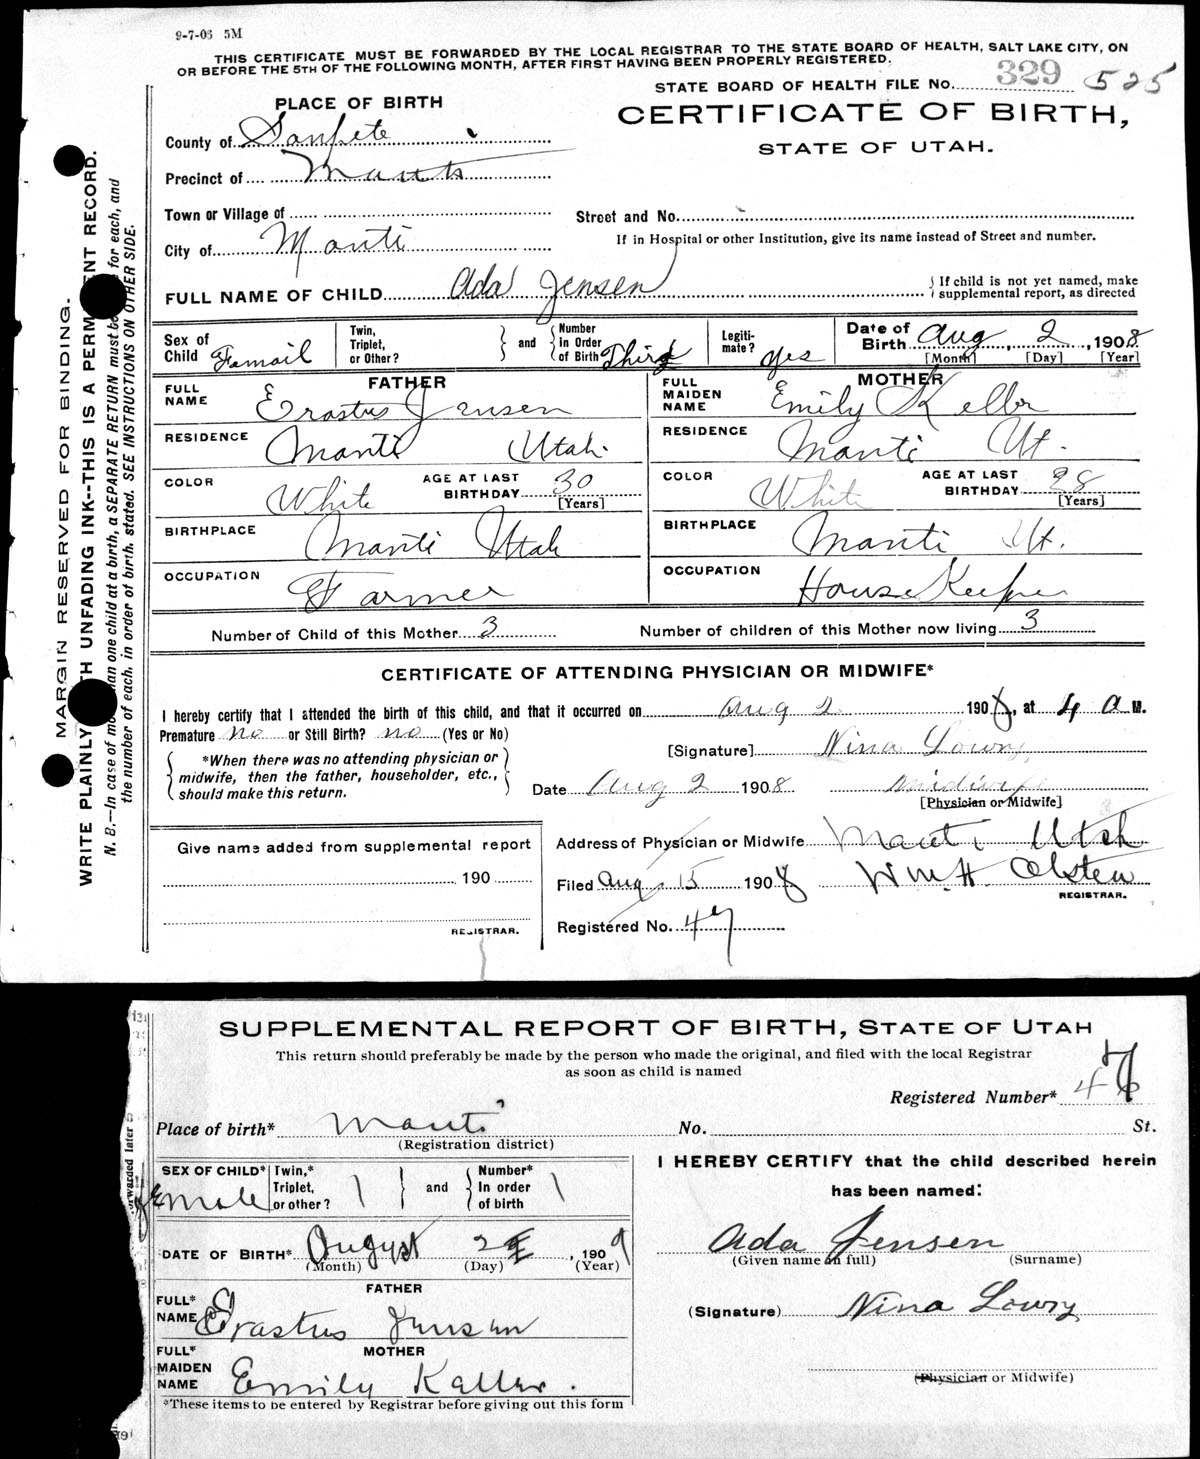 9-7-06 5M
THIS CERTIFICATE MUST BE FORWARDED BY THE LOCAL REGISTRAR TO THE STATE BOARD OF HEALTH, SALT LAKE CITY, ON
OR BEFORE THE 5TH OF THE FOLLOWING MONTH, AFTER FIRST HAVING BEEN PROPERLY REGISTERED.
STATE BOARD OF HEALTH FILE No. 329 525
PLACE OF BIRTH
CERTIFICATE OF BIRTH,
STATE OF UTAH.
County of Sanpete
Precinct of Manti
Town or Village of
Street and No.
City of Manti
If in Hospital or other Institution, give its name instead of Street and number.
FULL NAME OF CHILD Ada Jensen
{ If child is not yet named, make
supplemental report, as directed
Sex of Child Femail
Twin, Triplet, or Other? } and { Number in Order of Birth Third
Legiti-mate? yes
Date of Birth Aug 2, 1908
[Month] [Day] [Year]
FATHER
FULL NAME Erastus Jensen
MOTHER
FULL MAIDEN NAME Emily Keller
RESIDENCE Manti Utah.
RESIDENCE Manti Ut.
COLOR White AGE AT LAST BIRTHDAY 30 [Years]
COLOR White AGE AT LAST BIRTHDAY 28 [Years]
BIRTHPLACE Manti Utah
BIRTHPLACE Manti Ut.
OCCUPATION Farmer
OCCUPATION House Keeper
Number of Child of this Mother 3
Number of children of this Mother now living 3
CERTIFICATE OF ATTENDING PHYSICIAN OR MIDWIFE*
I hereby certify that I attended the birth of this child, and that it occurred on Aug 2 1908, at 4 A M.
Premature no or Still Birth? no (Yes or No)
[Signature] Nina Lowry
*When there was no attending physician or
midwife, then the father, householder, etc.,
should make this return.
Date Aug 2 1908 Midwife
[Physician or Midwife]
Give name added from supplemental report
190
REGISTRAR.
Address of Physician or Midwife Manti Utah
Filed Aug 15 1908 Wm. H. Olsten
REGISTRAR.
Registered No. 47
MARGIN RESERVED FOR BINDING.
WRITE PLAINLY WITH UNFADING INK--THIS IS A PERMANENT RECORD.
N. B.--In case of more than one child at a birth, a SEPARATE RETURN must be for each, and
the number of each, in order of birth, stated. SEE INSTRUCTIONS ON OTHER SIDE.
SUPPLEMENTAL REPORT OF BIRTH, STATE OF UTAH
This return should preferably be made by the person who made the original, and filed with the local Registrar
as soon as child is named
Registered Number* 47
Place of birth* Manti No. St.
(Registration district)
SEX OF CHILD* Female
Twin,* Triplet, or other? } and { Number* In order of birth
I HEREBY CERTIFY that the child described herein
has been named:
DATE OF BIRTH* August 2, 1909
(Month) (Day) (Year)
Ada Jensen
(Given name in full) (Surname)
FATHER
FULL* NAME Erastus Jensen
(Signature) Nina Lowry
MOTHER
FULL* MAIDEN NAME Emily Keller.
(Physician or Midwife)
*These items to be entered by Registrar before giving out this form
orwarded later